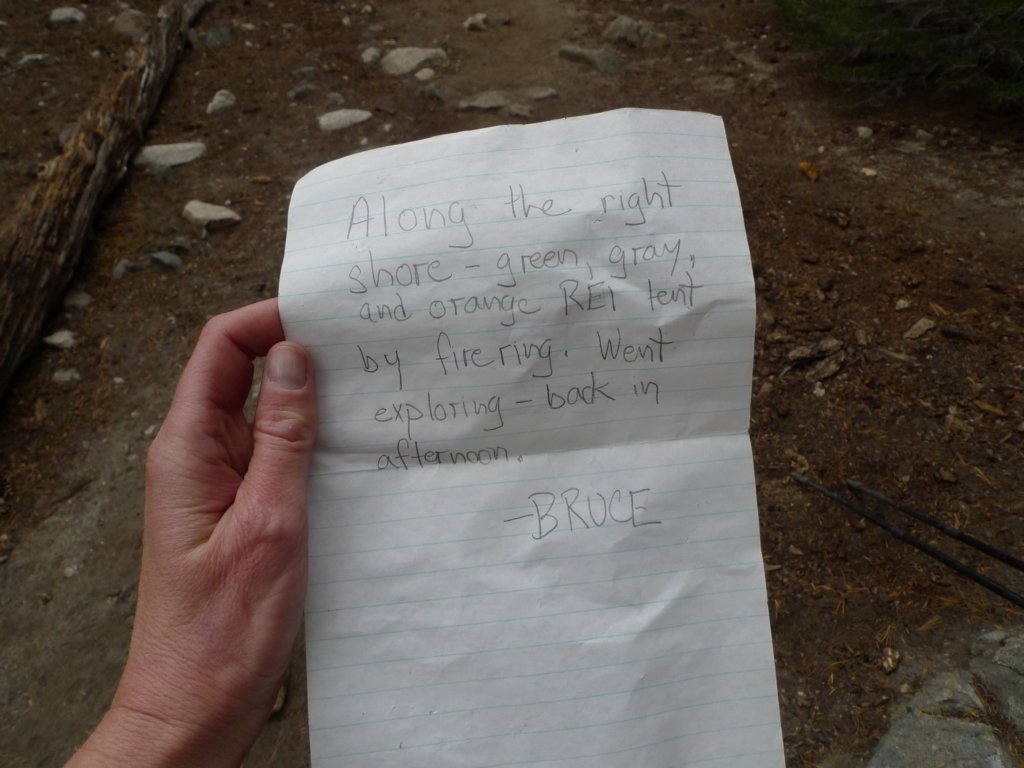 Along the right
shore - green, gray,
and orange REI tent
by fire ring. Went
exploring - back in
afternoon.
-BRUCE